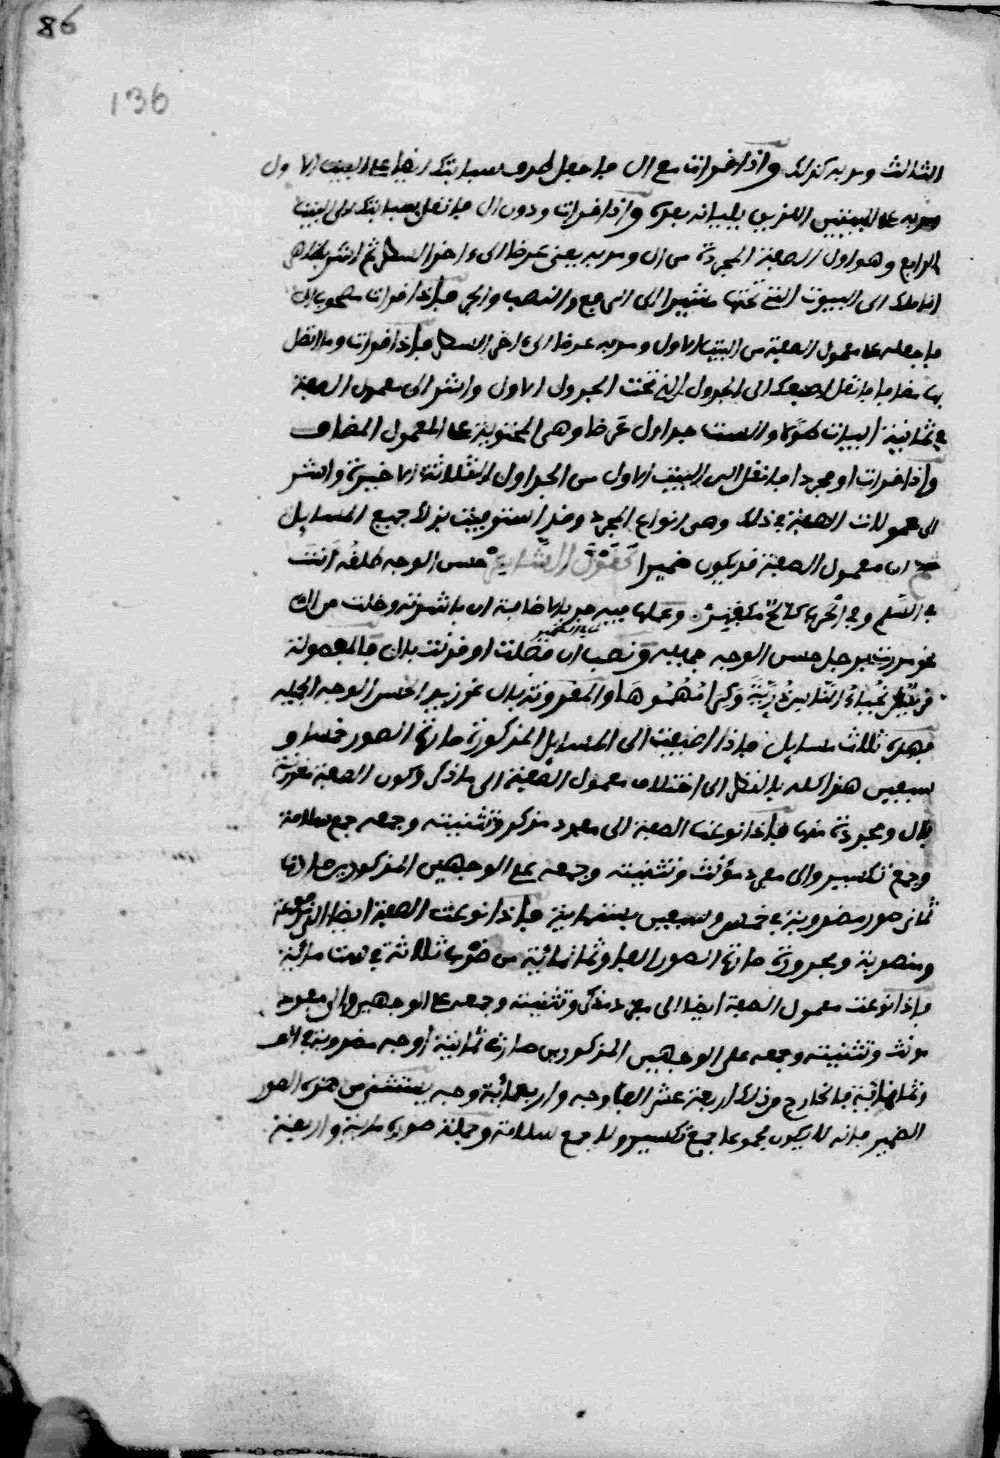 86
136
الثالث ومر به كذلك وإذا قرات مع ال فاجعل طرف سبابتك ايضا على البيت الاول
ومر به على البيتين اللذين يليانه بعده وإذا قرات ودون ال فانقل سبابتك الى البيت
الرابع وهو اول الصفة المجردة من ال ومر به يعني عرضا الى ءاخر الشكل ثم اشر بهذه
انامل الى البيوت التي تحتها مشيرا الى الرفع والنصب والجر فإذا قرات مصحوب ال
فاجعله على معمول الصفة من البيت الاول ومر به عرضا الى ءاخر الشكل فإذا قرات وما اتصل
بها مضافا فانقل اصبعك الى الجدول الذي تحت الجدول الاول واشر الى معمول الصفة
في ثمانية ابيات طولا والست جداول عرضا وهي المحتوية على المعمول المضاف
وإذا قرات او مجردا فانقل الى البيت الاول من الجداول الثلاثة الاخيرة واشر
الى معمولات الصفة في ذلك وهي انواع المجرد وقد استوفيت بذلك جميع المسايل
ثم ان معمول الصفة قد يكون ضميرا كقول الشاعر حسن الوجه طلقه انت
في السلم وفي الحرب كالح مكفهر وعملها فيه جر بالاضافة ان باشرته وخلت من ال
نحو مررت برجل حسن الوجه جميله ونصب ان فصلت او قرنت بال فالمفصولة
قريش نجباء الناس ذرية وكرامهموها والمقرونة بال نحو زيد الحسن الوجه الجميله
فهذه ثلاث مسايل فإذا اضيفت الى المسايل المذكورة صارت الصور خمسا و
سبعين هذا كله بالنظر الى اختلاف معمول الصفة الى ما ذكر وكون الصفة مقرونة
بال ومجردة منها فإذا نوعت الصفة الى مفرد مذكر وتثنيته وجمعه جمع سلامة
وجمع تكسير والى مفرد مؤنث وتثنيته وجمعه على الوجهين المذكورين صارت
ثماني صور مضروبة في خمس وسبعين بستمائة فإذا نوعت الصفة ايضا الى مرفوعة
ومنصوبة ومجرورة صارت الصور الفا وثمانمائة من ضرب ثلاثة في ست مائة
فإذا نوعت معمول الصفة ايضا الى مفرد مذكر وتثنيته وجمعه على الوجهين والى مفرد
مونث وتثنيته وجمعه على الوجهين المذكورين صارت ثمانية أوجه مضروبة في الف
وثمانمائة فالخارج من ذلك اربعة عشر الفا وجه واربعمائة وجه يستثنى من هذه الصور
الضمير فانه لا يكون مجموعا جمع تكسير ولا جمع سلامة وجملة صوره مائة واربعة